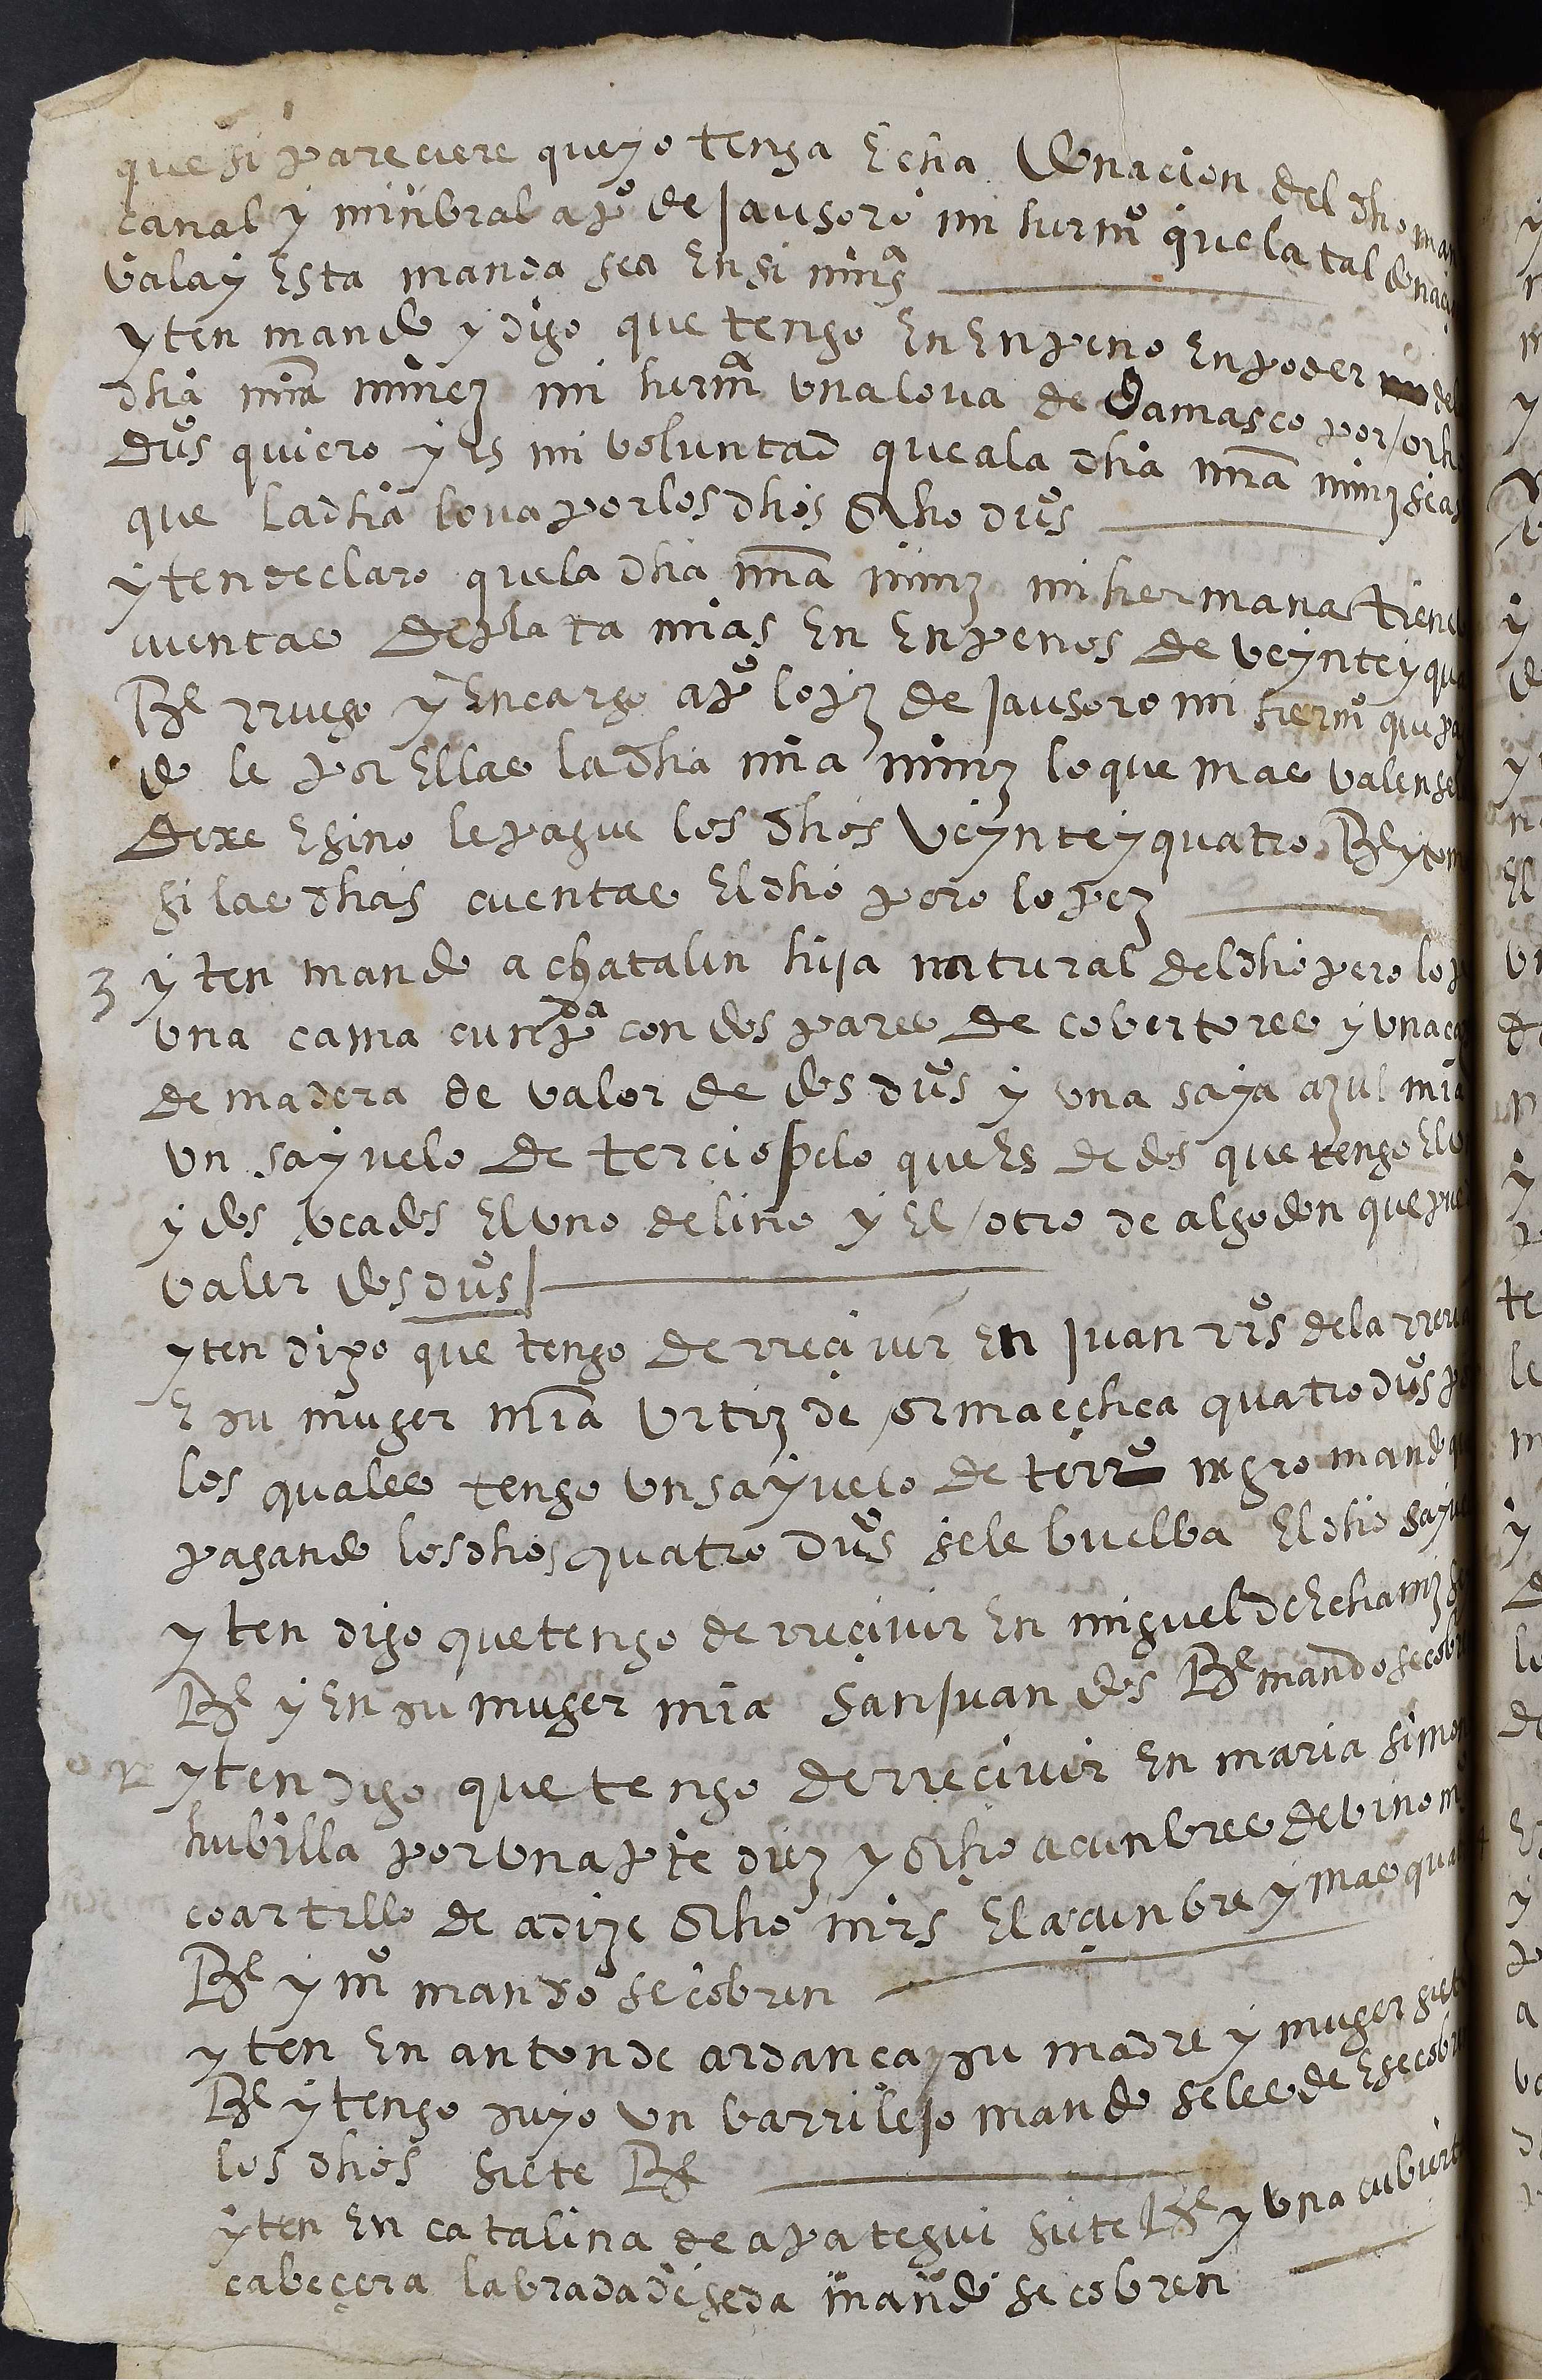 que si pareciere que yo tenga Echa donacion del dho man
canal y minbral a po de Jausoro mi hermo que la tal donaçi
vala y Esta manda sea En si ning
yten mando y digo que tengo En Enpeno En poder del
dha ma nunez mi herma vna loua de Damasco por ocho
dus quiero y Es mi voluntad que a la dha ma nunz se a
que la dha loua por los dhos Ocho dus
yten declaro que la dha ma nunz mi hermana tiene
cuentas de plata mias En Enpenos de veynte y qua
Rs rruego y Encargo a po lopz de Jausoro mi hermo que pa
do le por Ellas la dha ma nunz lo que mas valen se
dexe E sino le pague los dhos veynte y quatro Rs y tom
si las dhas cuentas El dho pero lopez
3 yten mando a chatalin hija natural del dho pero lop
vna cama cunpda con dos pares de covertores y vna ca
de madera de valor de dos dus y vna saya azul mia
vn sayuelo de terciopelo que Es de dos que tengo El
y dos vcados El vno de lino y El otro de algodon que pue
valer dos dus
yten dixo que tengo de rreçiuir En Juan rrs de la rreri
E su muger ma vrtiz de ormaechea quatro dus p
los quales tengo vn sayuelo de negro mando q
pagando los dhos quatro dus se le buelba El dho sayu
yten digo que tengo de rreçiuir En miguel de Echaniz s
Rs y En su muger mia San Juan dos Rs mando se cobr
yten digo que tengo de rreçiuir En maria simon
hubilla por vna pte diez y Ocho açunbres de vino m
coartillo de a diz e Ocho mrs El açunbre y mas qua
Rs y mo mando se cobren
yten En anton de ardança su madre y muger siet
Rs y tengo suyo vn barrilejo mando se les de E se cobr
los dhos siete Rs
yten En catalina de apategui siete Rs y vna cubiert
cabeçera labrada de seda mando se cobren